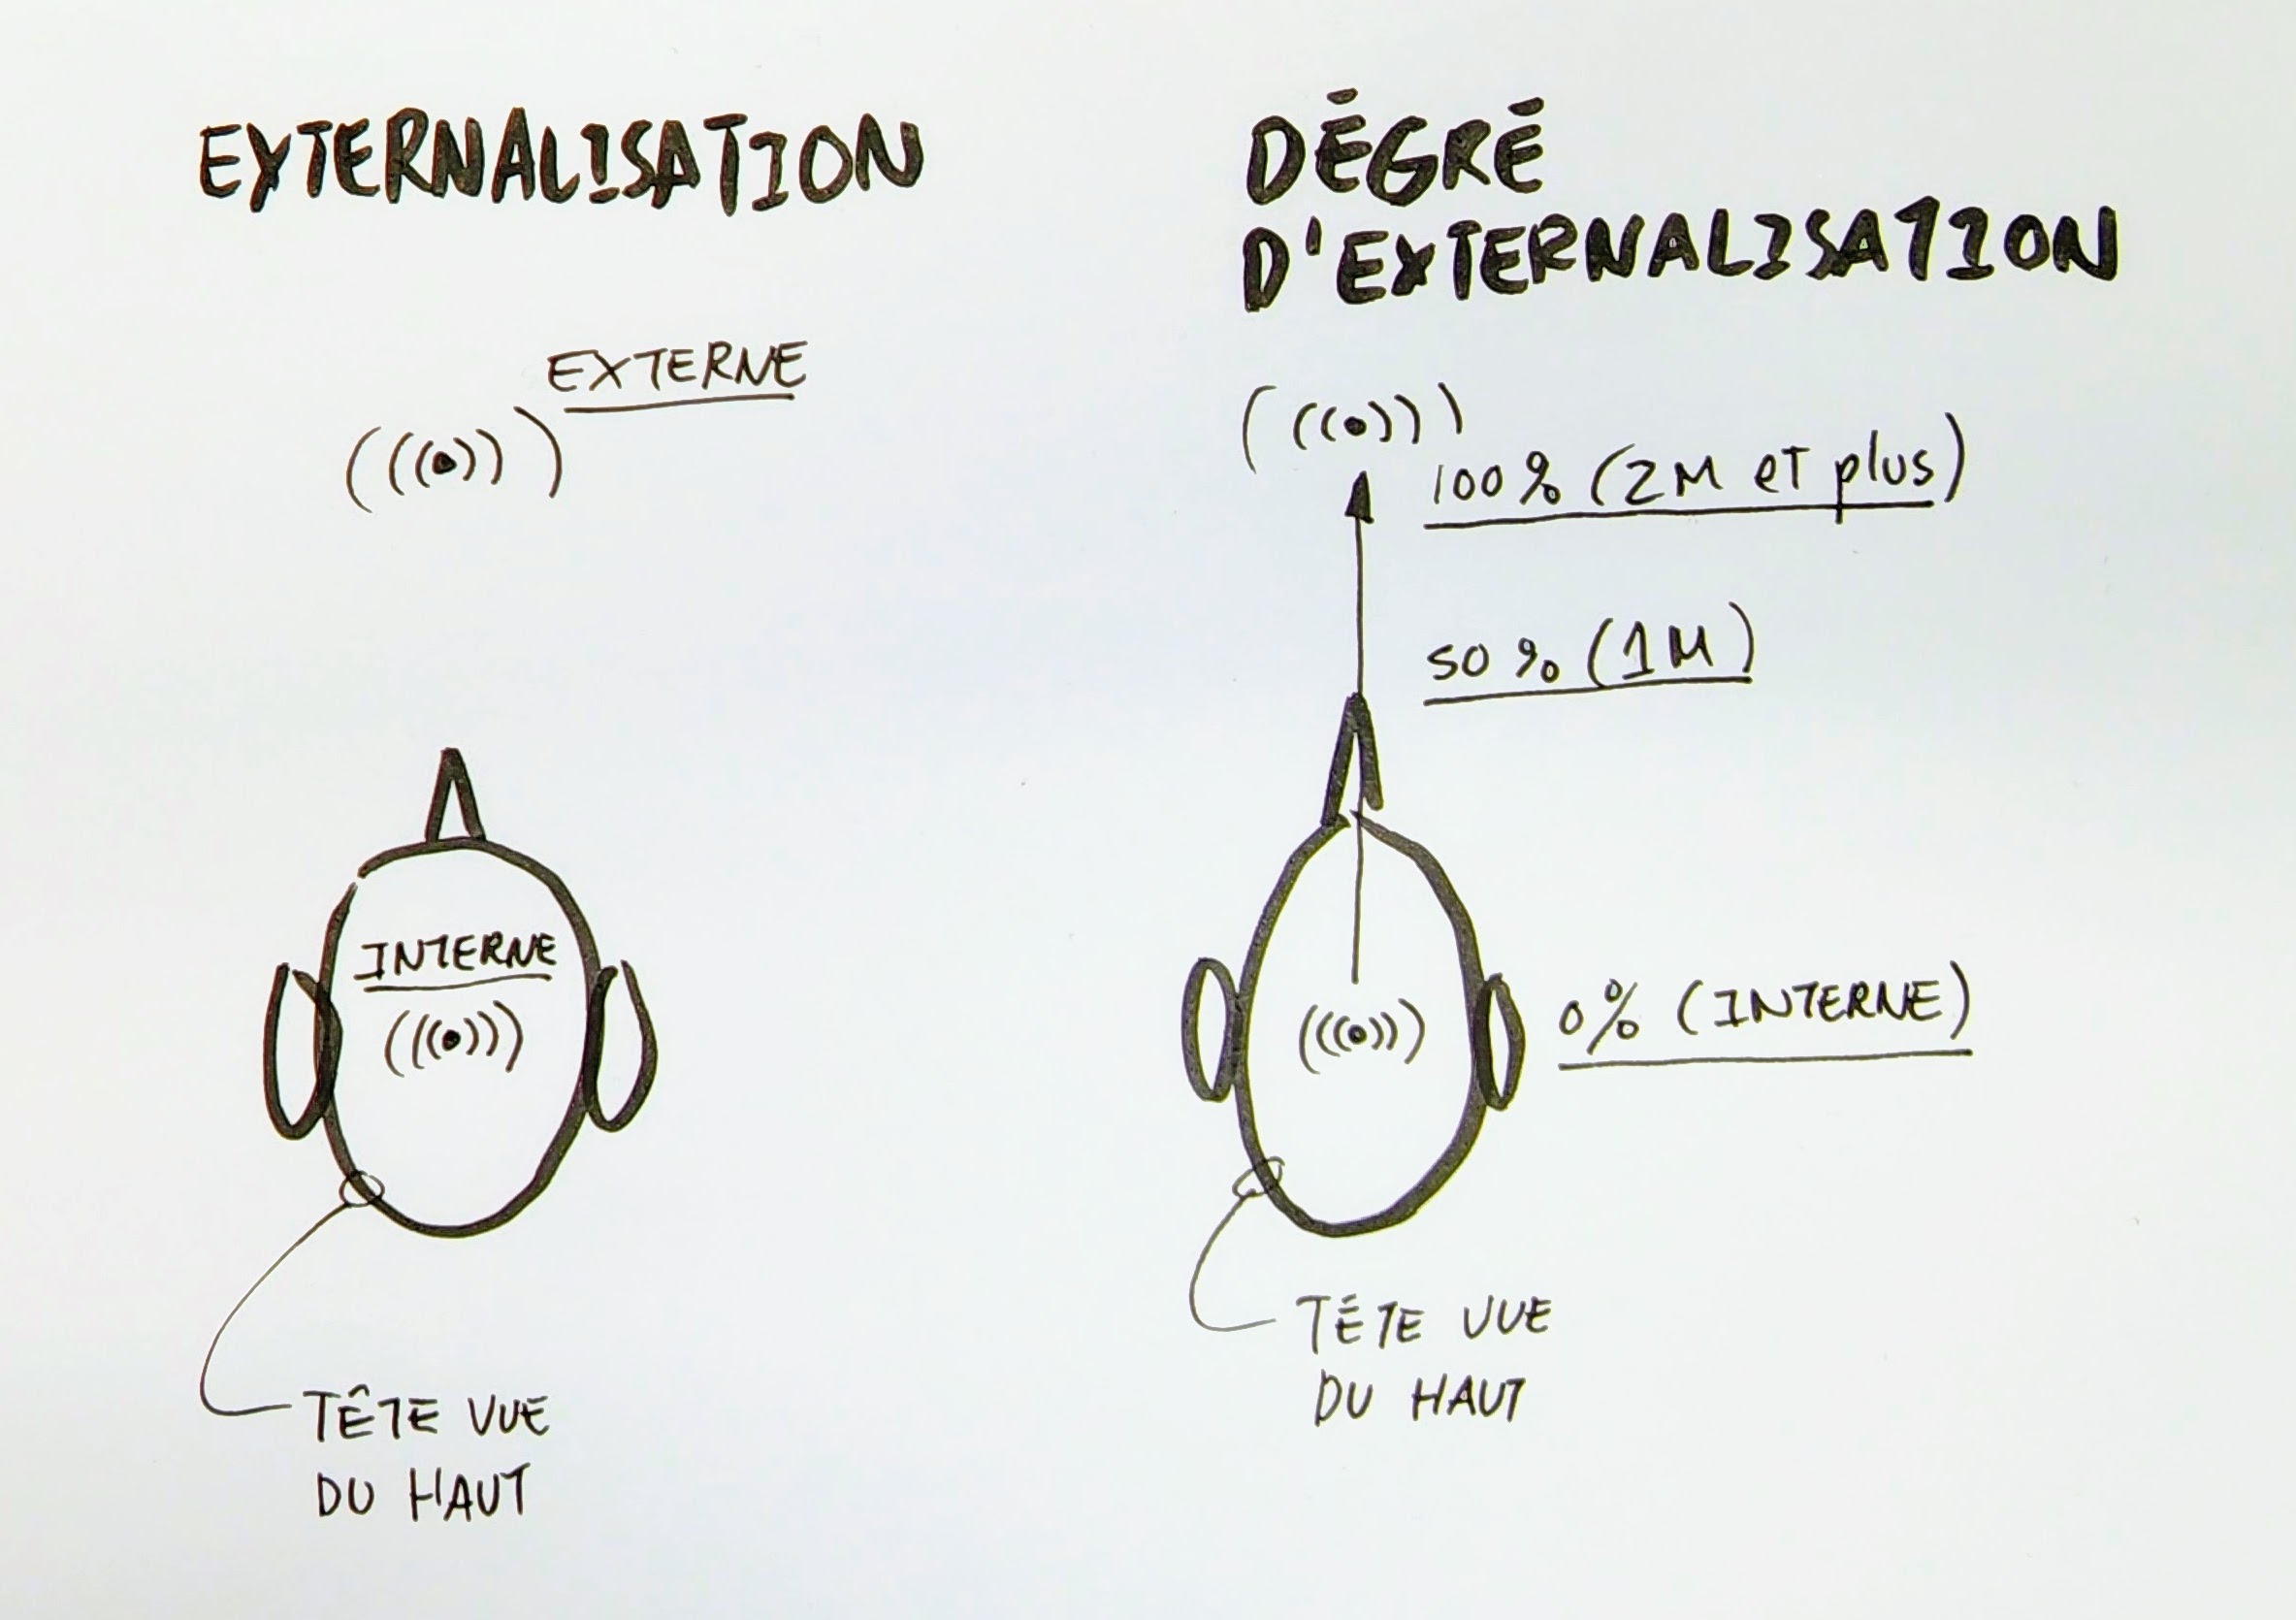 EXTERNALISATION
EXTERNE
INTERNE
TÊTE VUE
DU HAUT
DÉGRÉ
D'EXTERNALISATION
100% (2M et plus)
50% (1M)
0% (INTERNE)
TÊTE VUE
DU HAUT